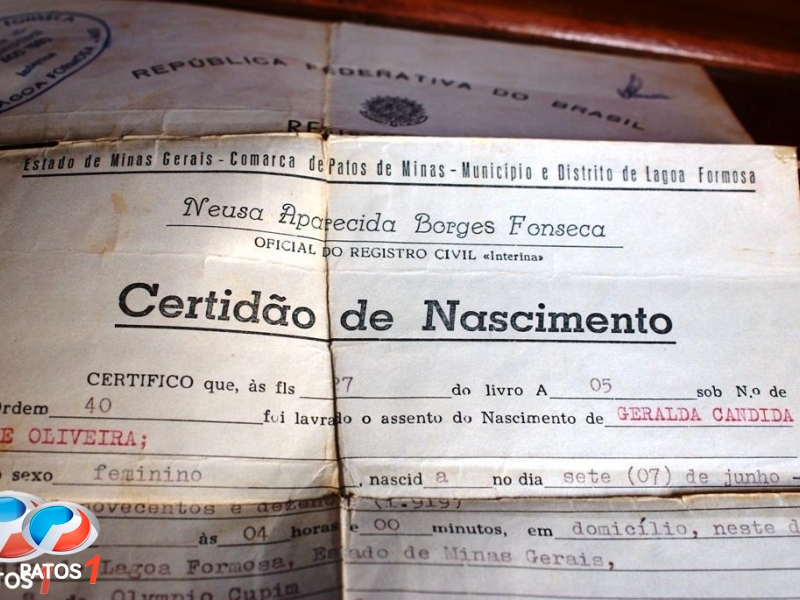 FONSECA
LAGOA FORMOSA
REPÚBLICA FEDERATIVA DO BRASIL
Estado de Minas Gerais - Comarca de Patos de Minas - Município e Distrito de Lagoa Formosa
Neusa Aparecida Borges Fonseca
OFICIAL DO REGISTRO CIVIL «Interina»
Certidão de Nascimento
CERTIFICO que, às fls 27 do livro A 05 sob N.o de
Ordem 40 foi lavrado o assento do Nascimento de GERALDA CANDIDA
E OLIVEIRA;
o sexo feminino, nascida no dia sete (07) de junho -
novecentos e dezenove (1.919)
às 04 horas e 00 minutos, em domicílio, neste d
Lagoa Formosa, Estado de Minas Gerais,
Olympio Cupim
PATOS1